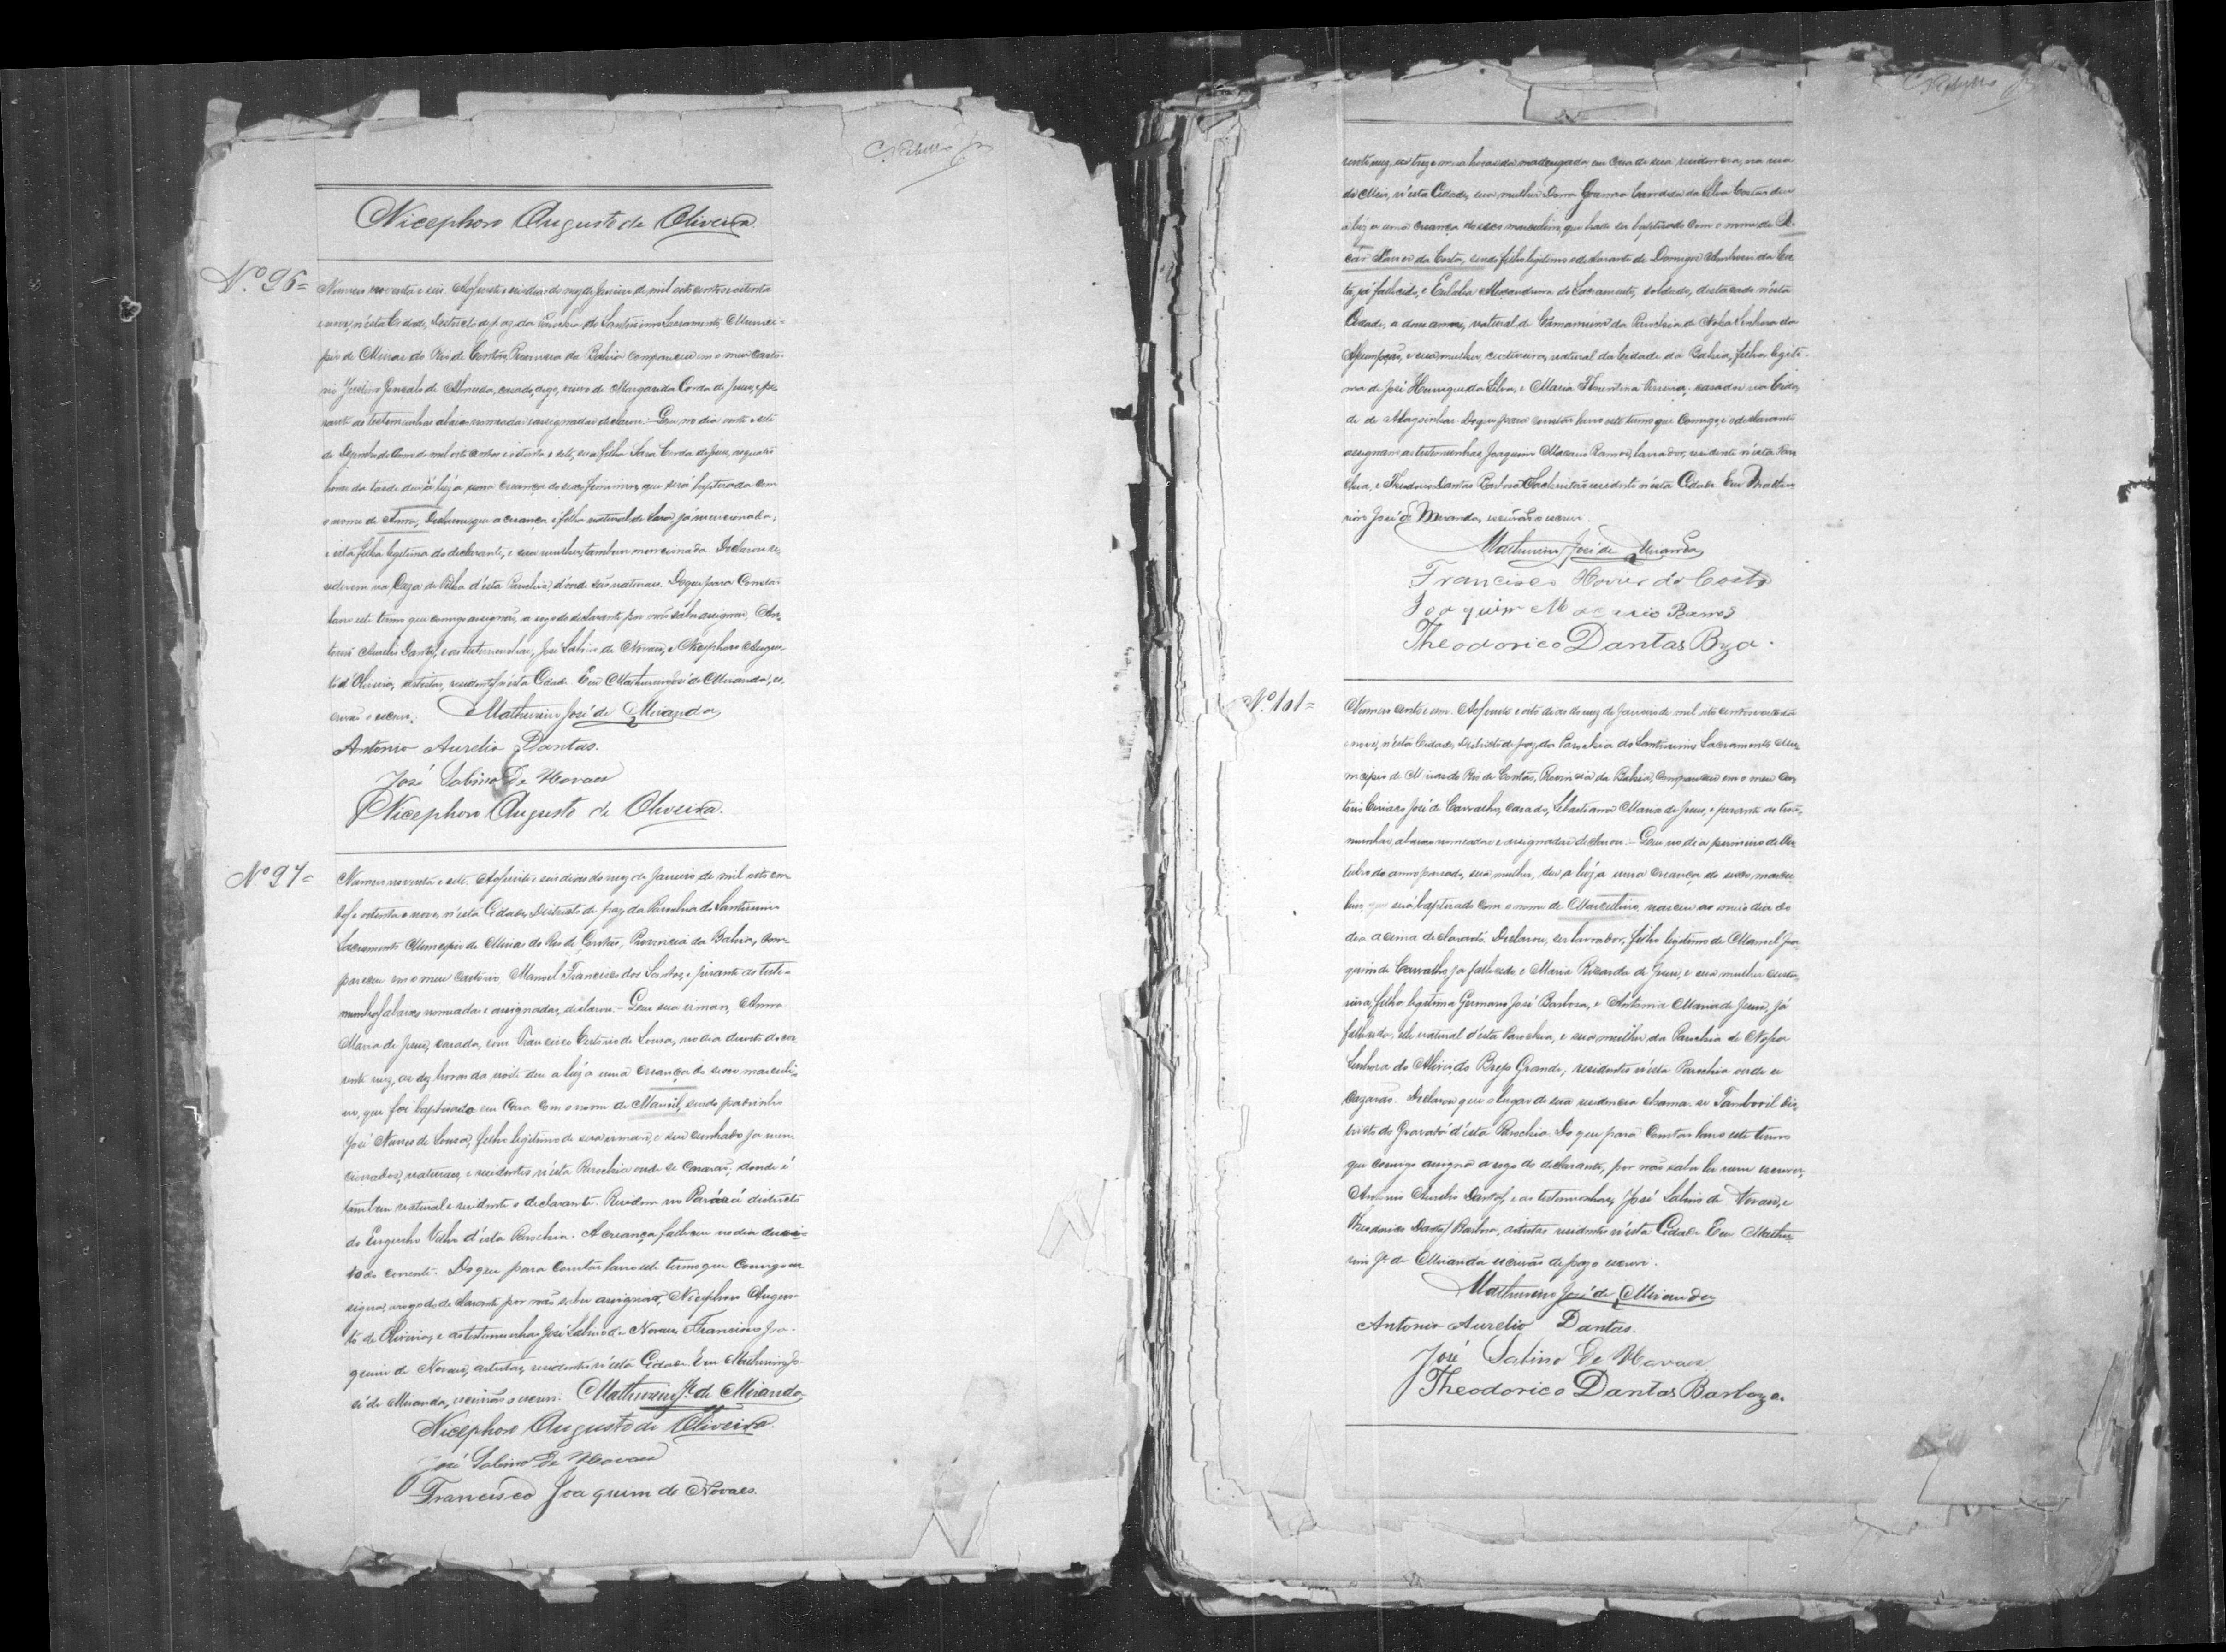 Nicephoro Augusto de Oliveira
Nº 96=
Numero noventa e seis. Aos vinte e seis dias do mez de Janeiro de mil oito centos e oitenta
e nove, n'esta Cidade, Districto de paz da Parochia do Santissimo Sacramento, Munici-
pio de Minas do Rio de Contas, Provincia da Bahia compareceu em o meu Carto-
rio Gonçalo de Almeida, viuvo de Margarida Corda de Jesus, e pe-
rante as testemunhas abaixo nomeadas e assignadas declarou: Que no dia vinte e sete
de de mil oito centos e oitenta e sete, sua filha Sara Corda de Jesus, as quatro
horas da tarde deu á luz a uma creança do sexo feminino, que será baptizada com
o nome de Anna, Declarou que a creança é filha natural de Sara, já mencionada,
e esta filha legitima do declarante, e sua mulher, tambem mencionada. Declarou re-
sidirem na d'esta Parochia, d'onde são naturaes. Do que para constar
lavro este termo que comigo assignão, a rogo do declarante por não saber assignar, An-
tonio Aurelio Dantas, e as testemunhas, José Sabino de Novaes, e Nicephoro Augus-
to d'Oliveira, artistas, residentes n'esta Cidade. Eu Mathurino José de Miranda, es-
crivão o escrevi. Mathurino José de Miranda
Antonio Aurelio Dantas.
José Sabino De Novaes
Nicephoro Augusto de Oliveira.
Nº 97=
Numero noventa e sete. Aos vinte e seis dias do mez de Janeiro de mil oito cen-
tos e oitenta e nove, n'esta Cidade, Districto de paz da Parochia do Santissimo
Sacramento Municipio de Minas do Rio de Contas, Provincia da Bahia, com-
pareceu em o meu Cartorio Manoel Francisco dos Santos, e perante as teste-
munhas abaixo nomeadas e assignadas, declarou:- Que sua irman, Anna
Maria de Jesus, casada, com Francisco de Sousa, no dia do cor-
rente mez, as dez horas da noite deu a luz a uma creança do sexo masculi-
no, que foi baptizado em Casa com o nome de Manoel, sendo padrinho
José Nunes de Sousa, filho legitimo de sua irman, e seu cunhado ja men-
cionados, naturaes, e residentes n'esta Parochia onde se casarão, donde é
tambem natural e residente o declarante. Residem no districto
do Engenho Velho d'esta Parochia. A creança falleceu no dia
do corrente. Do que para constar lavro este termo que comigo as-
signa, a rogo do declarante por não saber assignar, Nicephoro Augus-
to de Oliveira, e as testemunhas José Sabino de Novaes, e Francisco Joa-
quim de Novaes, artistas, residentes n'esta Cidade. Eu Mathurino Jo-
sé de Miranda, escrivão o escrevi. Mathurino Jé de Miranda
Nicephoro Augusto de Oliveira.
José Sabino De Novaes
Francisco Joaquim de Novaes.
rente mez, as trez e meia horas da madrugada, em Casa de sua residencia, na rua
do Meio, n'esta Cidade, sua mulher Dona Candida da Silva Costa deu
á luz a uma creança do sexo masculino, que hade ser baptizado com o nome de
Xavier da Costa, sendo filho legitimo o declarante de Domingos da Cos-
ta, já fallecido, e Eulalia Alexandrina do Sacramento, soldado, destacado n'esta
Cidade, a dous annos, natural de da Parochia de Nossa Senhora da
Assumpção, e sua mulher, costureira, natural da Cidade da Bahia, filha legiti-
ma de José Henrique da Silva, e Maria Florentina casados na Cida-
de de Alagoinhas. Do que para constar lavro este termo que comigo, e o declarante
assignam as testemunhas, Joaquim Macario Ramos, lavrador, residente n'esta Paro-
chia, e Theodorico Dantas Barbosa, residente n'esta Cidade. Eu Mathu-
rino José de Miranda, escrivão o escrevi.
Mathurino José de Miranda
Francisco Xavier da Costa
Joaquim Macario Ramos
Theodorico Dantas Bza.
Nº 101=
Numero cento e um. Aos vinte e oito dias do mez de Janeiro de mil oito centos e oitenta
e nove, n'esta Cidade, Districto de paz da Parochia do Santissimo Sacramento Mu-
nicipio de Minas do Rio de Contas, Provincia da Bahia, compareceu em o meu Car-
torio José de Carvalho, casado, Sebastiana Maria de Jesus, e perante as teste-
munhas, abaixo nomeadas e assignadas declarou:- Que no dia primeiro de Ou-
tubro do anno passado, sua mulher, deu a luz a uma creança do sexo mascu-
lino, que será baptizado com o nome de Marcolino, nasceu ao meio dia do
dia acima declarado. Declarou, ser lavrador, filho legitimo de Manoel Joa-
quim de Carvalho, ja fallecido e Maria Ricarda de Jesus, e sua mulher costu-
reira, filha legitima Germano José Barbosa, e Antonia Maria de Jesus, já
fallecida, elle natural d'esta Parochia, e sua mulher da Parochia de Nossa
Senhora do Allivio do Brejo Grande, residentes n'esta Parochia onde se
cazarão. Declarou que o lugar de sua residencia chama-se Tamboril dis-
tricto do Gravatá d'esta Parochia. Do que para constar lavro este termo
que comigo assigna a rogo do declarante, por não saber ler nem escrever,
Antonio Aurelio Dantas, e as testemunhas, José Sabino de Novaes, e
Theodorico Dantas Barboza, artistas residentes n'esta Cidade. Eu Mathu-
rino Jé de Miranda escrivão de paz o escrevi.
Mathurino José de Miranda
Antonio Aurelio Dantas.
José Sabino De Novaes
Theodorico Dantas Barboza.